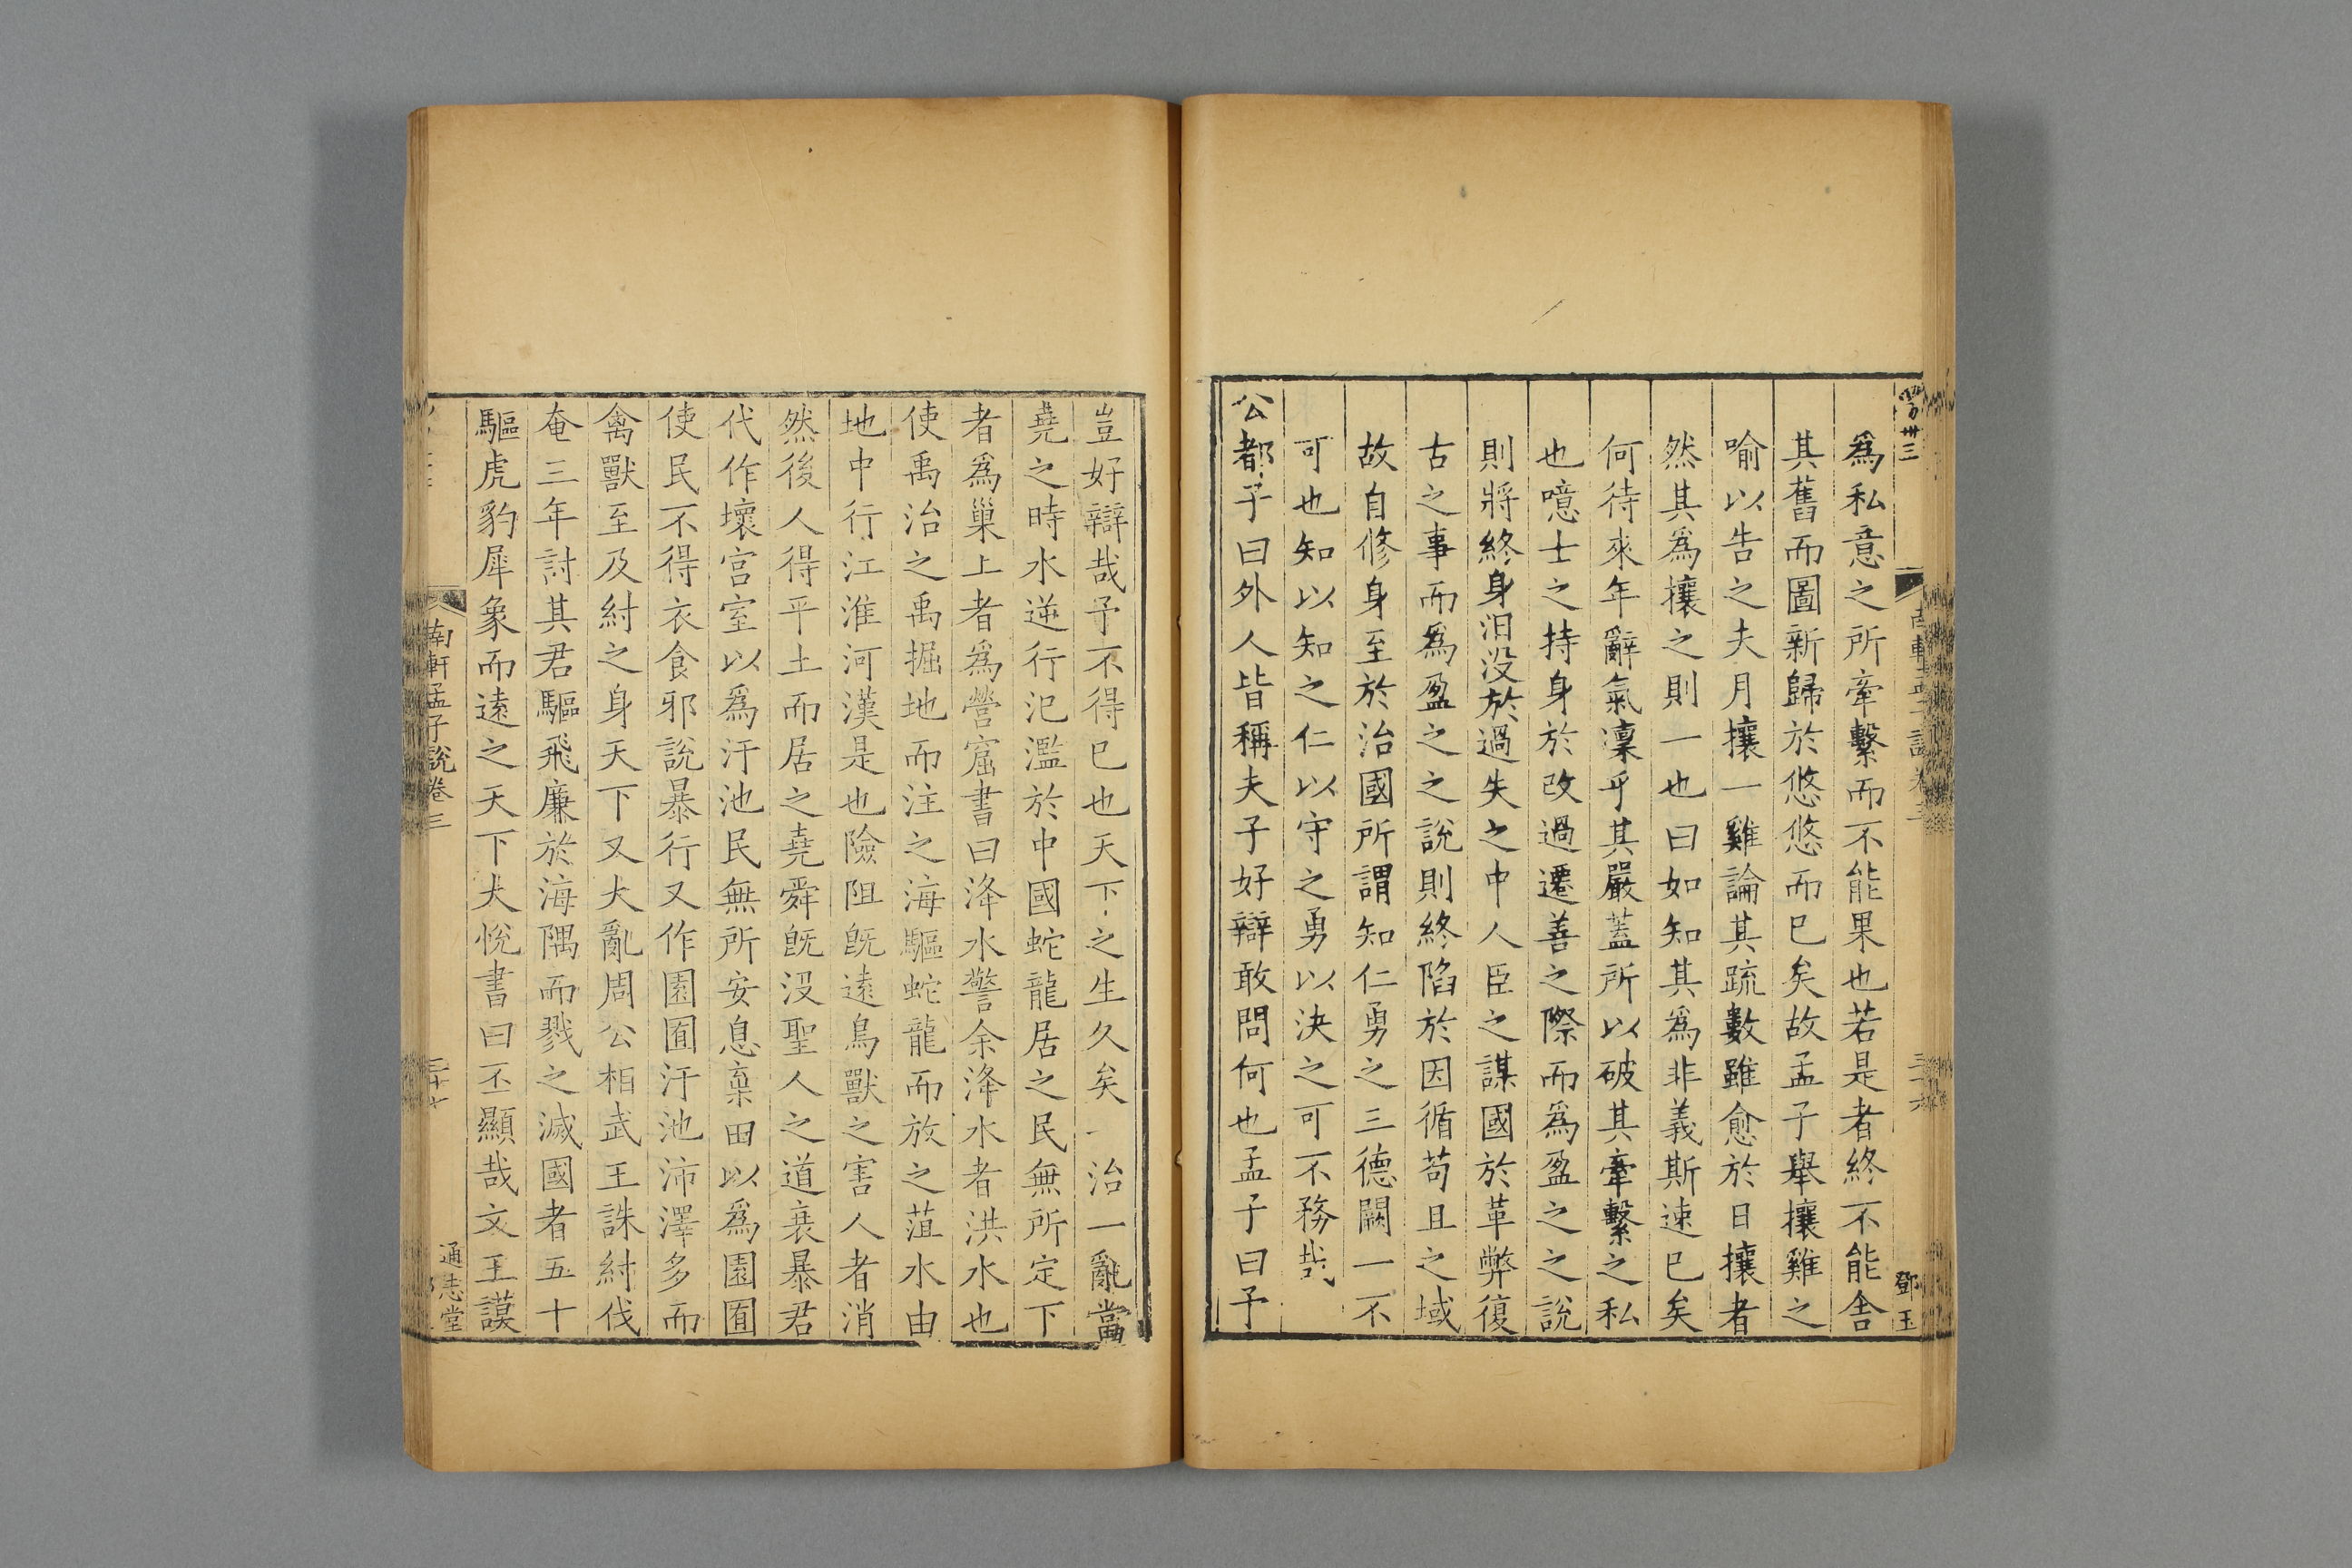 爲私意之所牽繫而不能果也若是者終不能舍
其舊而圖新歸於悠悠而已矣故孟子舉攘雞之
喻以告之夫月攘一雞論其疏數雖愈於日攘者
然其爲攘之則一也曰如知其爲非義斯速已矣
何待來年辭氣凜乎其嚴蓋所以破其牽繫之私
也噫士之持身於改過遷善之際而爲盈之之說
則將終身汨没於過失之中人臣之謀國於革弊復
古之事而爲盈之之說則終陷於因循苟且之域
故自修身至於治國所謂知仁勇之三德闕一不
可也知以知之仁以守之勇以決之可不務哉
公都子曰外人皆稱夫子好辯敢問何也孟子曰予
鄧玉
豈好辯哉予不得已也天下之生久矣一治一亂當
堯之時水逆行氾濫於中國蛇龍居之民無所定下
者爲巢上者爲營窟書曰洚水警余洚水者洪水也
使禹治之禹掘地而注之海驅蛇龍而放之菹水由
地中行江淮河漢是也險阻旣遠鳥獸之害人者消
然後人得平土而居之堯舜旣没聖人之道衰暴君
代作壞宫室以爲汙池民無所安息棄田以爲園囿
使民不得衣食邪說暴行又作園囿汙池沛澤多而
禽獸至及紂之身天下又大亂周公相武王誅紂伐
奄三年討其君驅飛廉於海隅而戮之滅國者五十
驅虎豹犀象而遠之天下大悅書曰丕顯哉文王謨
南軒孟子說卷三
三十七
通志堂